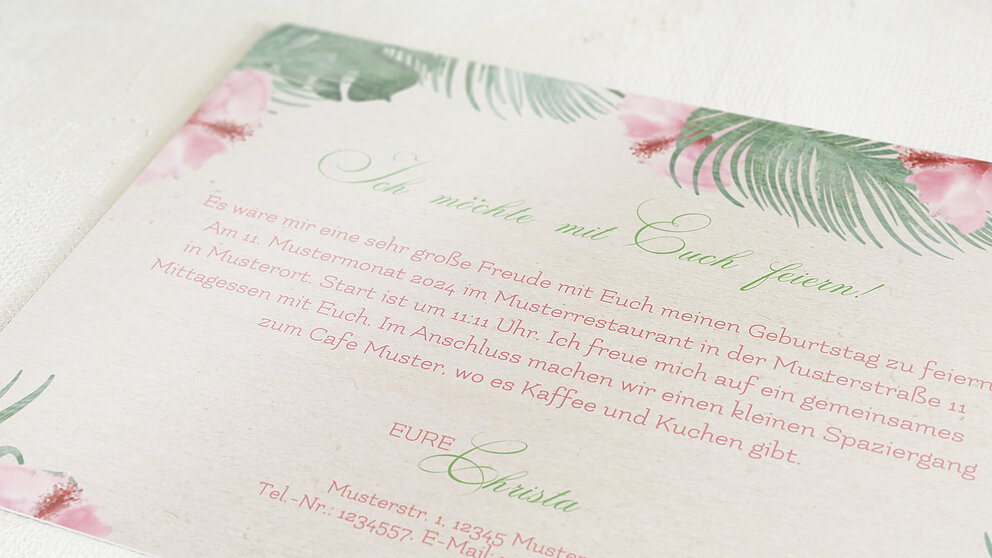 Ich möchte mit Euch feiern!
Es wäre mir eine sehr große Freude mit Euch meinen Geburtstag zu feiern
Am 11. Mustermonat 2024 im Musterrestaurant in der Musterstraße 11
in Musterort. Start ist um 11:11 Uhr. Ich freue mich auf ein gemeinsames
Mittagessen mit Euch. Im Anschluss machen wir einen kleinen Spaziergang
zum Cafe Muster, wo es Kaffee und Kuchen gibt.
EURE Christa
Musterstr. 1, 12345
Tel.-Nr.: 1234557, E-Mail: